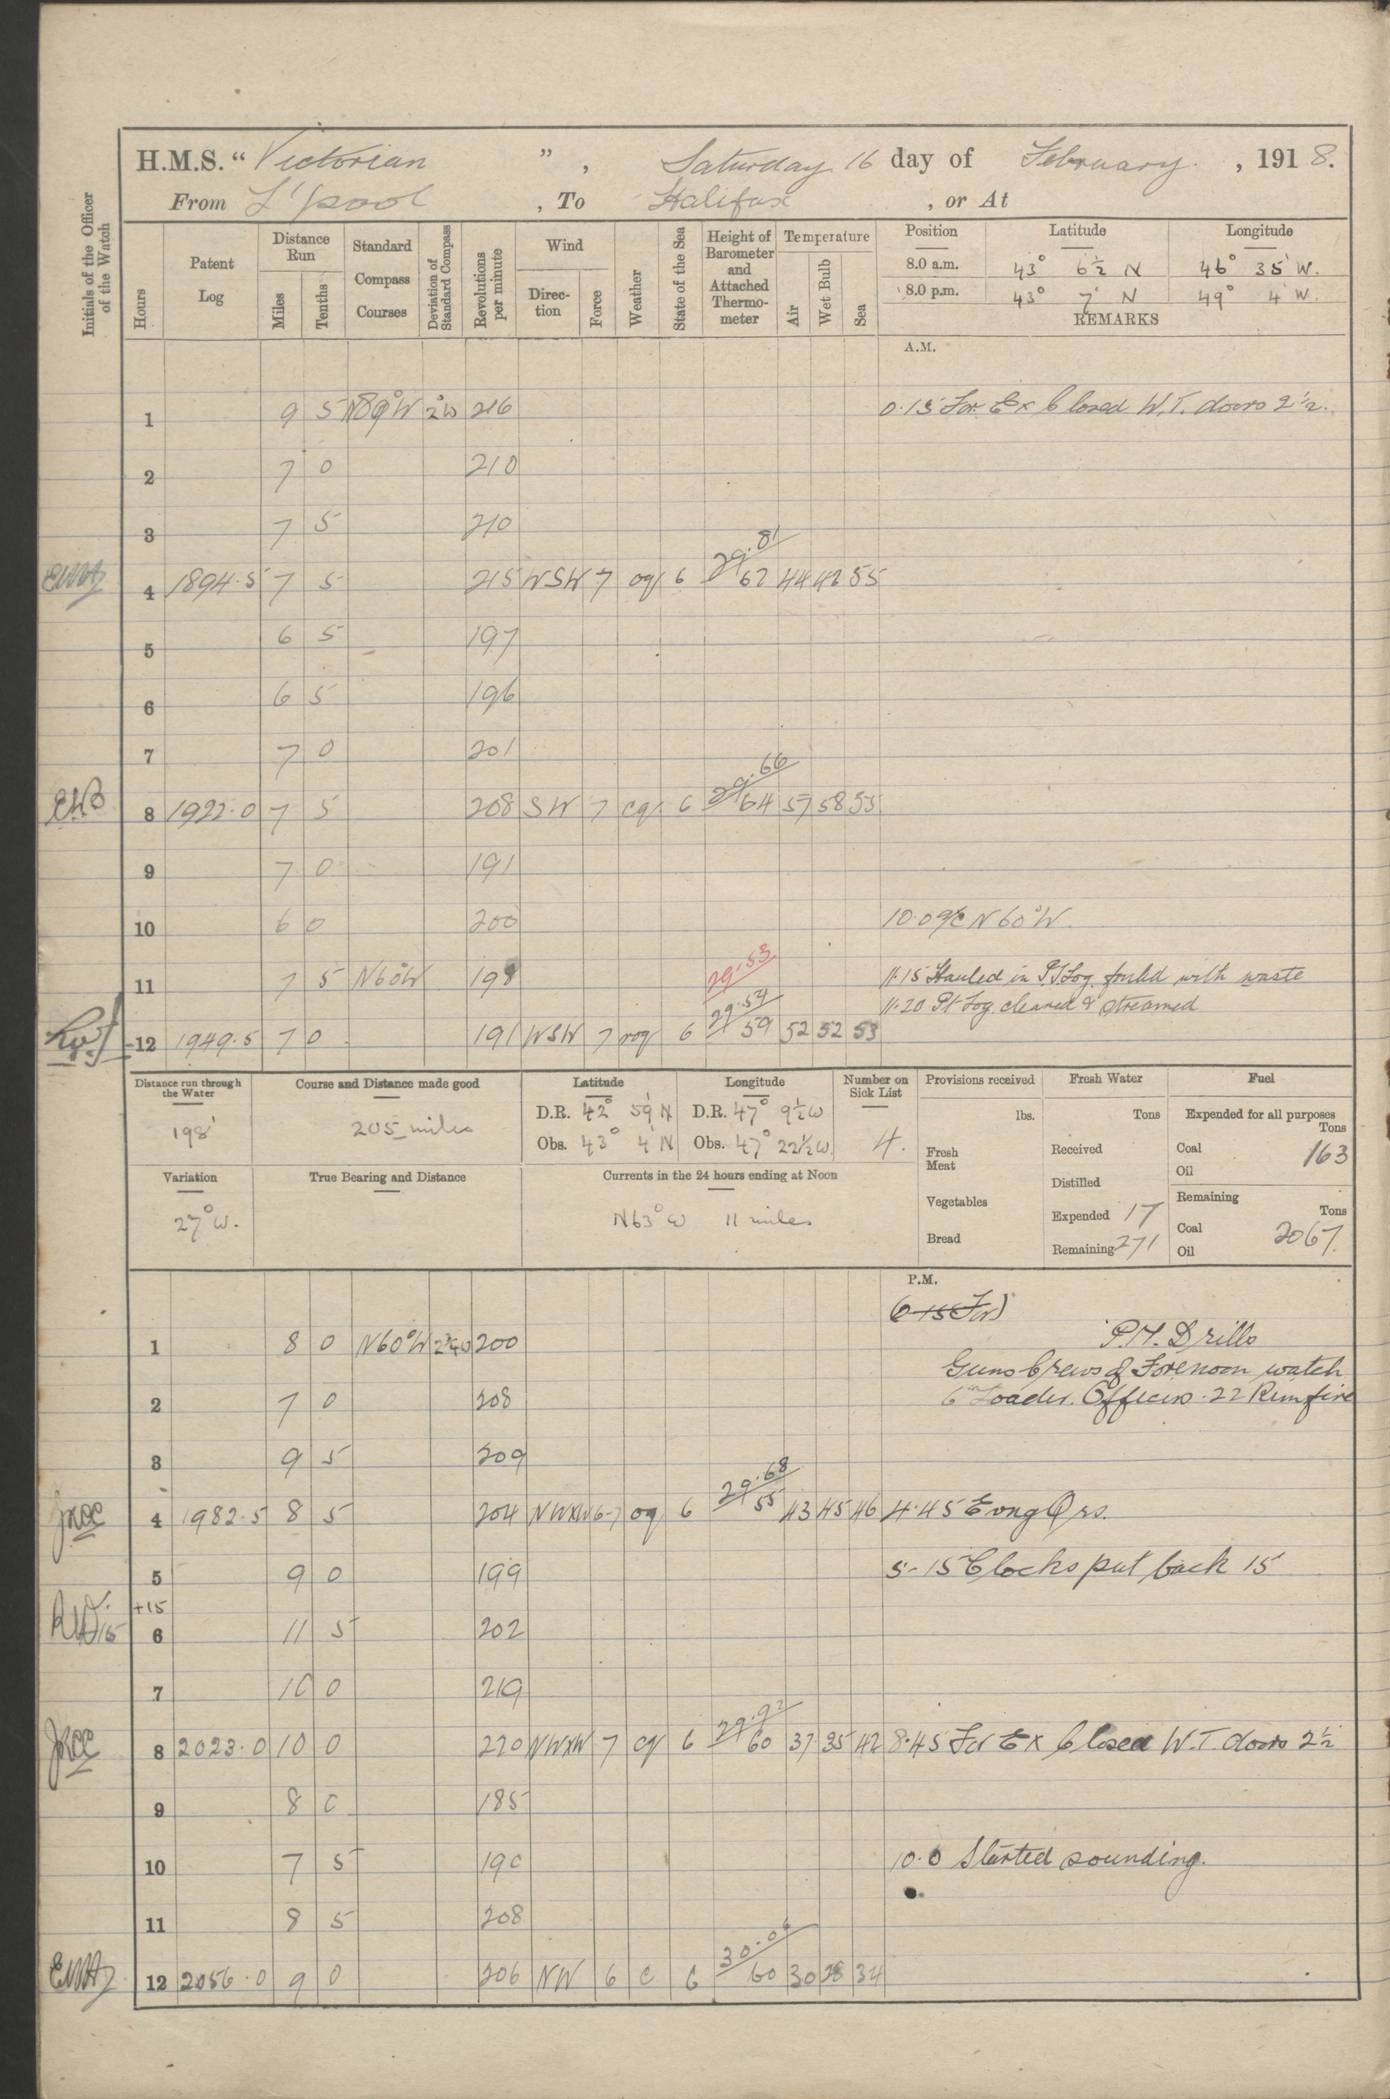 H.M.S. “ Victorian ” , Saturday 16 day of February. , 1918.
From L'pool , To Halifax , or At
Initials of the Officer of the Watch
Hours
Patent Log
Distance Run
Miles
Tenths
Standard Compass Courses
Deviation of Standard Compass
Revolutions per minute
Wind
Direction
Force
Weather
State of the Sea
Height of Barometer and Attached Thermometer
Temperature
Air
Wet Bulb
Sea
Position Latitude Longitude
8.0 a.m. 43° 6½ N 46° 35' W.
8.0 p.m. 43° 7' N 49° 4' W.
REMARKS
A.M.
1 9 5 N89°W 2°W 216 0.15 For. Ex Closed W.T. doors 2½.
2 7 0 210
3 7 5 210
29.81
4 1894.5 7 5 215 WSW 7 oq 6 62 44 42 55
5 6 5 197
6 6 5 196
7 7 0 201
29.66
EWB 8 1922.0 7 5 208 SW 7 cq 6 64 57 58 55
9 7 0 191
10 6 0 200 10.0 a/c N60°W.
29.53
11 7 5 N60W 198 11.15 Hauled in Pt Log. fould with waste
29.54 11.20 Pt Log cleared & streamed
12 1949.5 7 0 191 WSW 7 roq 6 59 52 52 53
Distance run through the Water
198'
Course and Distance made good
205 miles
Latitude
D.R. 42° 59' N
Obs. 43° 4' N
Longitude
D.R. 47° 9½ W
Obs. 47° 22½ W.
Number on Sick List
4.
Variation
27° W.
True Bearing and Distance
Currents in the 24 hours ending at Noon
N63°W 11 miles
Provisions received
lbs.
Fresh Meat
Vegetables
Bread
Fresh Water
Tons
Received
Distilled
Expended 17
Remaining 271
Fuel
Expended for all purposes
Tons
Coal 163
Oil
Remaining
Tons
Coal 2067.
Oil
P.M.
(0.15 For)
P.M. Drills
1 8 0 N60°W 2¾W 200
Guns Crews of Forenoon watch
2 7 0 208 6in Loader. Officers .22 Rimfire
3 9 5 209
29.68
4 1982.5 8 5 204 NWxW 6-7 oq 6 55 43 45 46 4.45 Evng Qrs.
5 9 0 199 5-15 Clocks put back 15
+15
6 11 5 202
7 10 0 219
29.92
8 2023.0 10 0 220 NWxW 7 cq 6 60 37 35 42 8.45 For Ex Closed W.T. doors 2½
9 8 0 185
10 7 5 190 10.0 Started sounding.
11 8 5 208
30.06
12 2056.0 9 0 206 NW 6 c 6 60 30 28 34